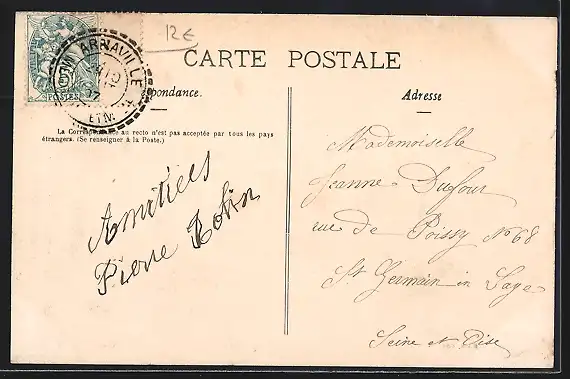 12€
ARNAVILLE
POSTES
CARTE POSTALE
pondance.
Adresse
La Correspondance au recto n'est pas acceptée par tous les pays
étrangers. (Se renseigner à la Poste.)
Amitiées
Pierre Robin
Mademoiselle
Jeanne Dufour
rue de Poissy N° 68
St Germain en Laye
Seine et Oise